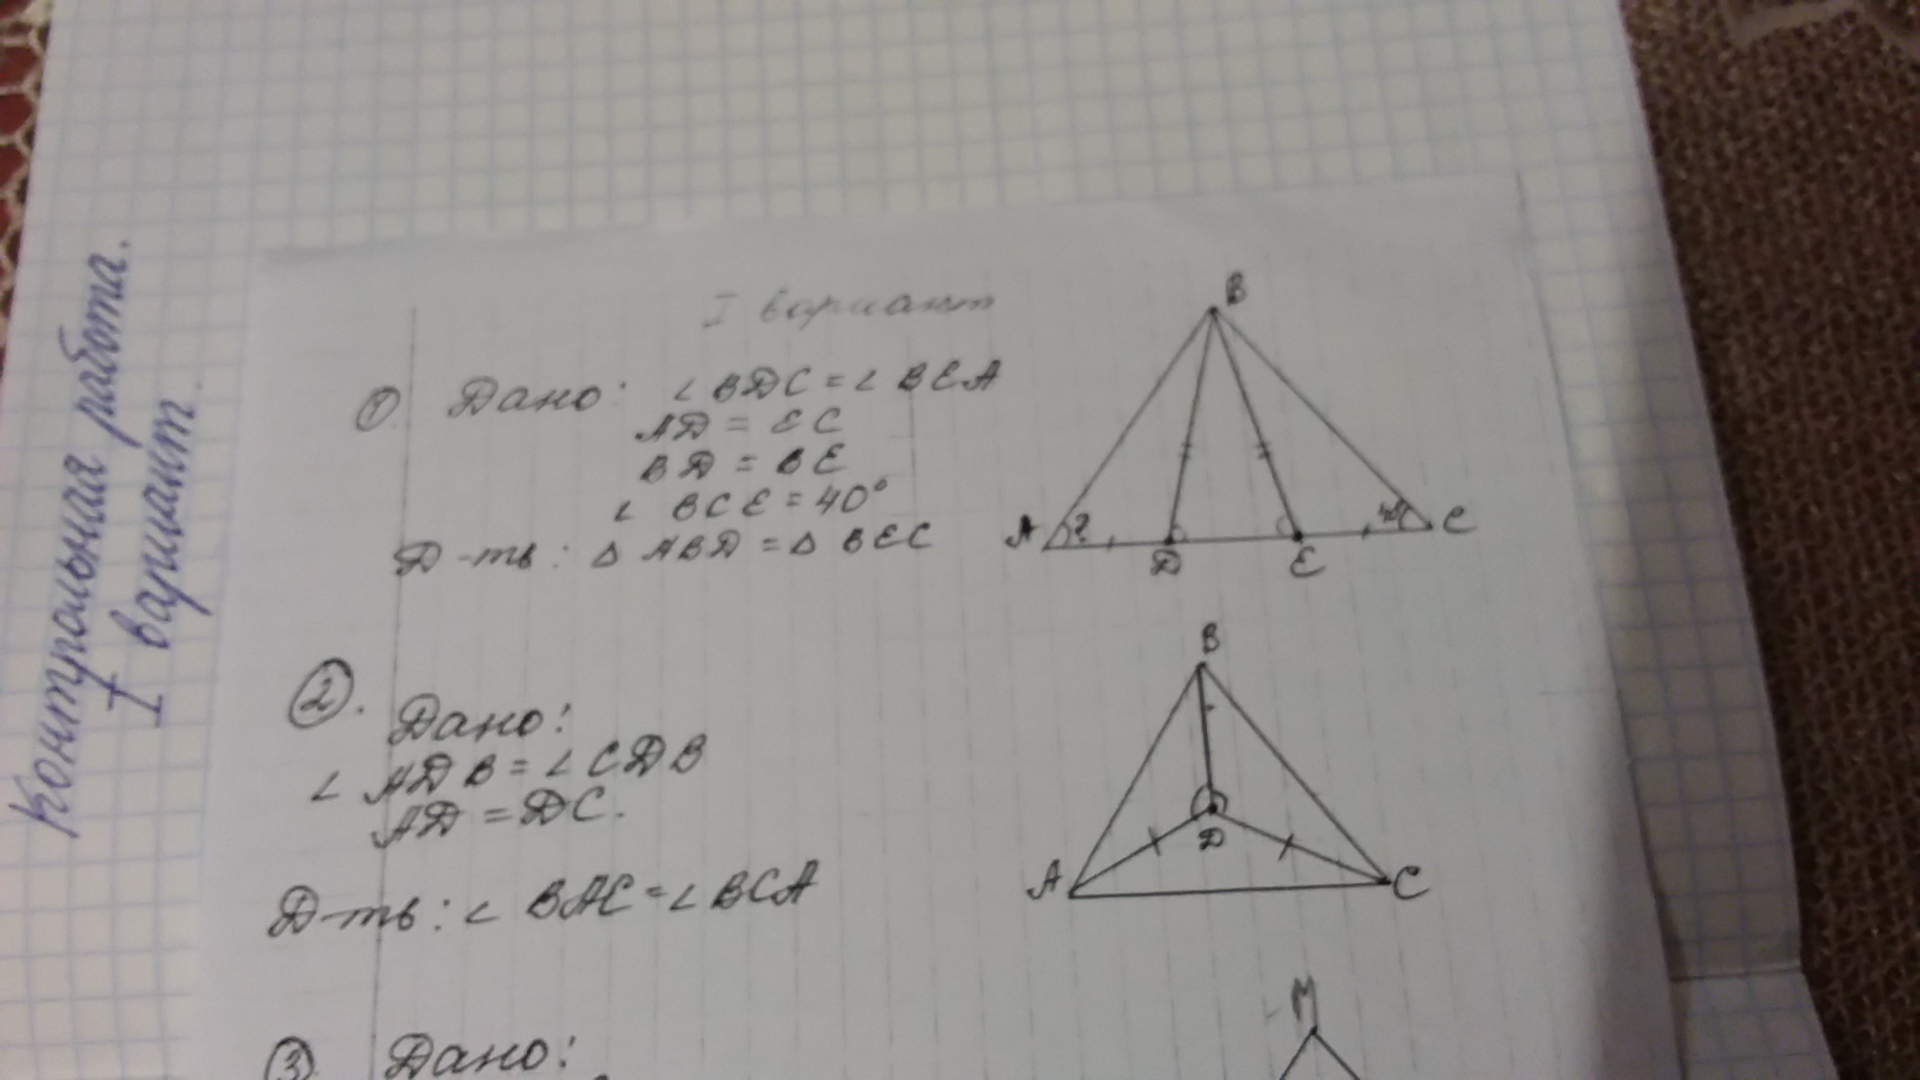 Контрольная работа.
I вариант.
I вариант
1. Дано: ∠BDC = ∠BEA
AD = EC
BD = BE
∠ BCE = 40°
Д-ть: △ ABD = △ BEC
B
A ? D E 40° C
2. Дано:
∠ ADB = ∠CDB
AD = DC.
Д-ть: ∠ BAC = ∠BCA
B
D
A C
3 Дано:
M